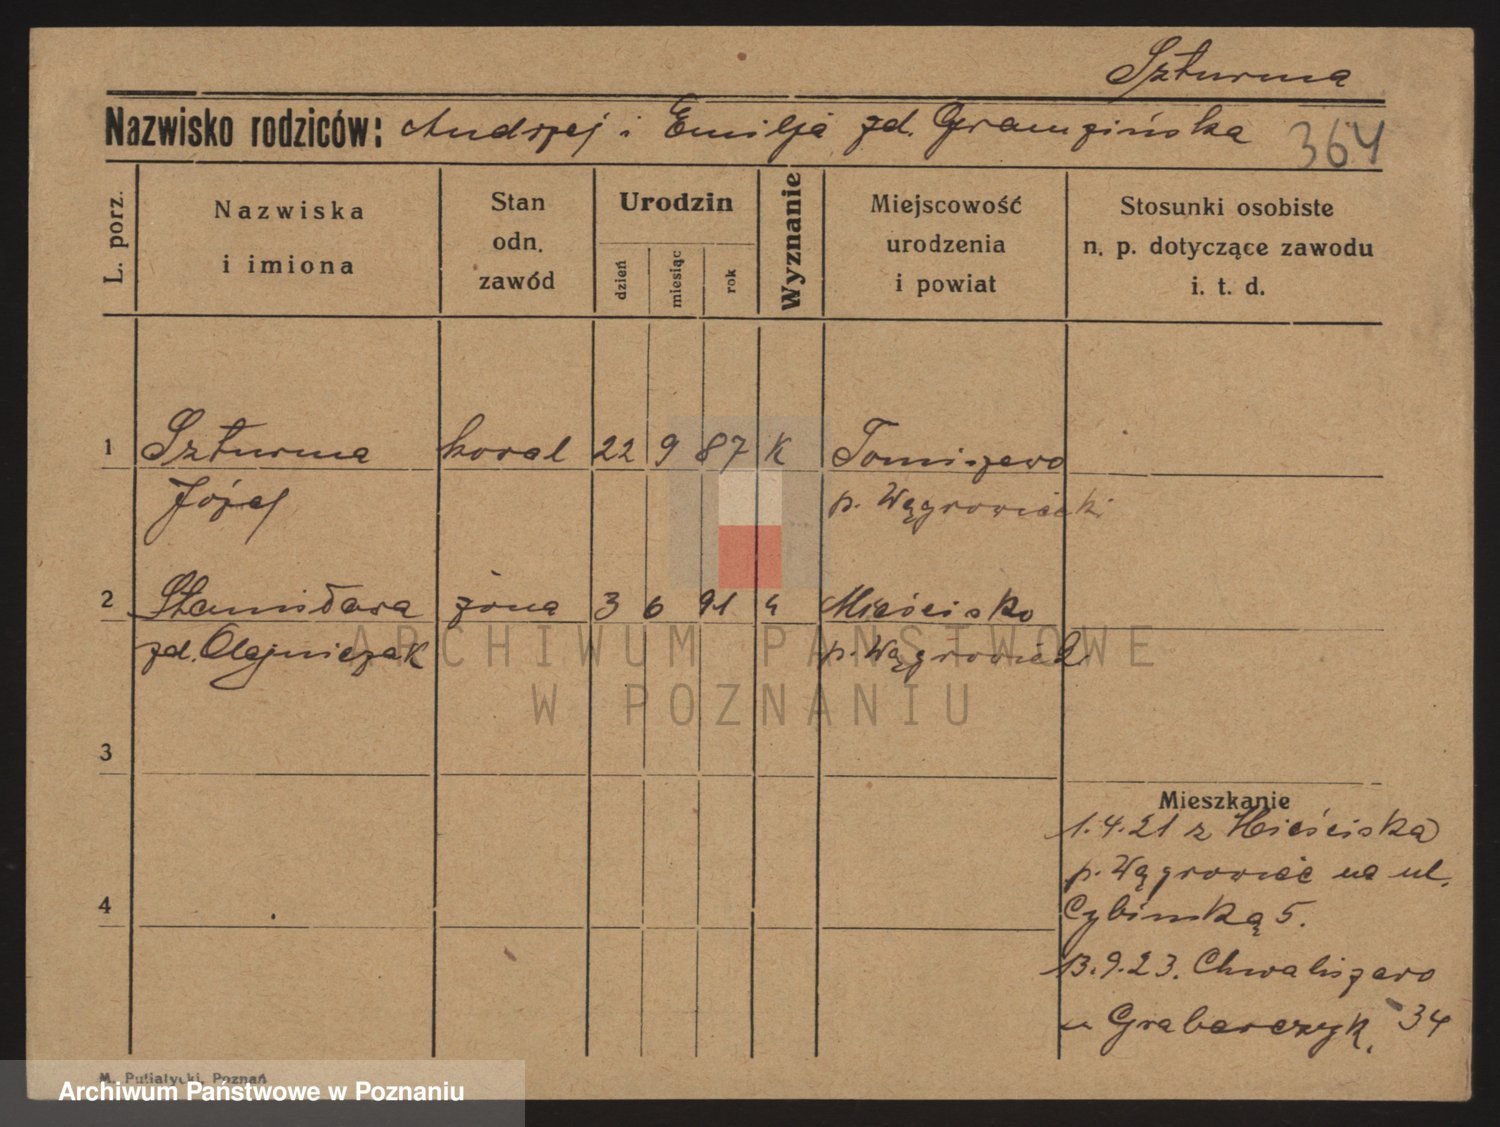 Szturma
Nazwisko rodziców: Andrzej i Emilja zd. Gramzińska 364
L. porz.
Nazwiska
i imiona
Stan
odn.
zawód
Urodzin
dzień
miesiąc
rok
Wyznanie
Miejscowość
urodzenia
i powiat
Stosunki osobiste
n. p. dotyczące zawodu
i. t. d.
1 Szturma kowal 22 9 87 K Tomiszewo
Józef p. Wągrowiecki
2 Stanisława żona 3 6 91 Mieścisko
zd. Olejniczak p. Wągrowiecki
ARCHIWUM PAŃSTWOWE
W POZNANIU
3
Mieszkanie
1.4.21 z Mieściska
p. Wągrowiec na ul.
4
Cybińską 5.
13.9.23. Chwaliszewo
u Grabarczyk. 34
M. Putiatycki, Poznań
Archiwum Państwowe w Poznaniu